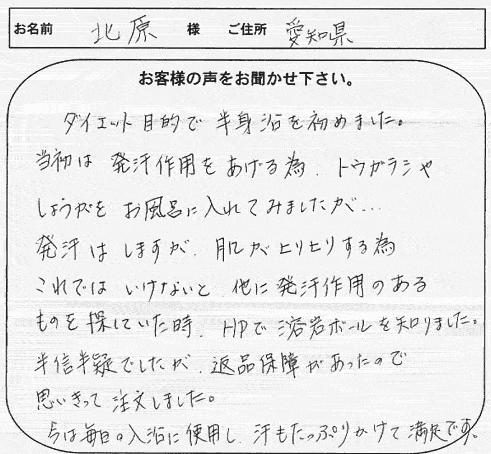 お名前 北原 様 ご住所 愛知県
お客様の声をお聞かせ下さい。
ダイエット目的で半身浴を初めました。
当初は発汗作用をあげる為、トウガラシや
しょうがをお風呂に入れてみましたが…
発汗はしますが、肌がヒリヒリする為
これではいけないと、他に発汗作用のある
ものを探していた時、HPで溶岩ボールを知りました。
半信半疑でしたが、返品保障があったので
思いきって注文しました。
今は毎日の入浴に使用し、汗もたっぷりかけて満足です。